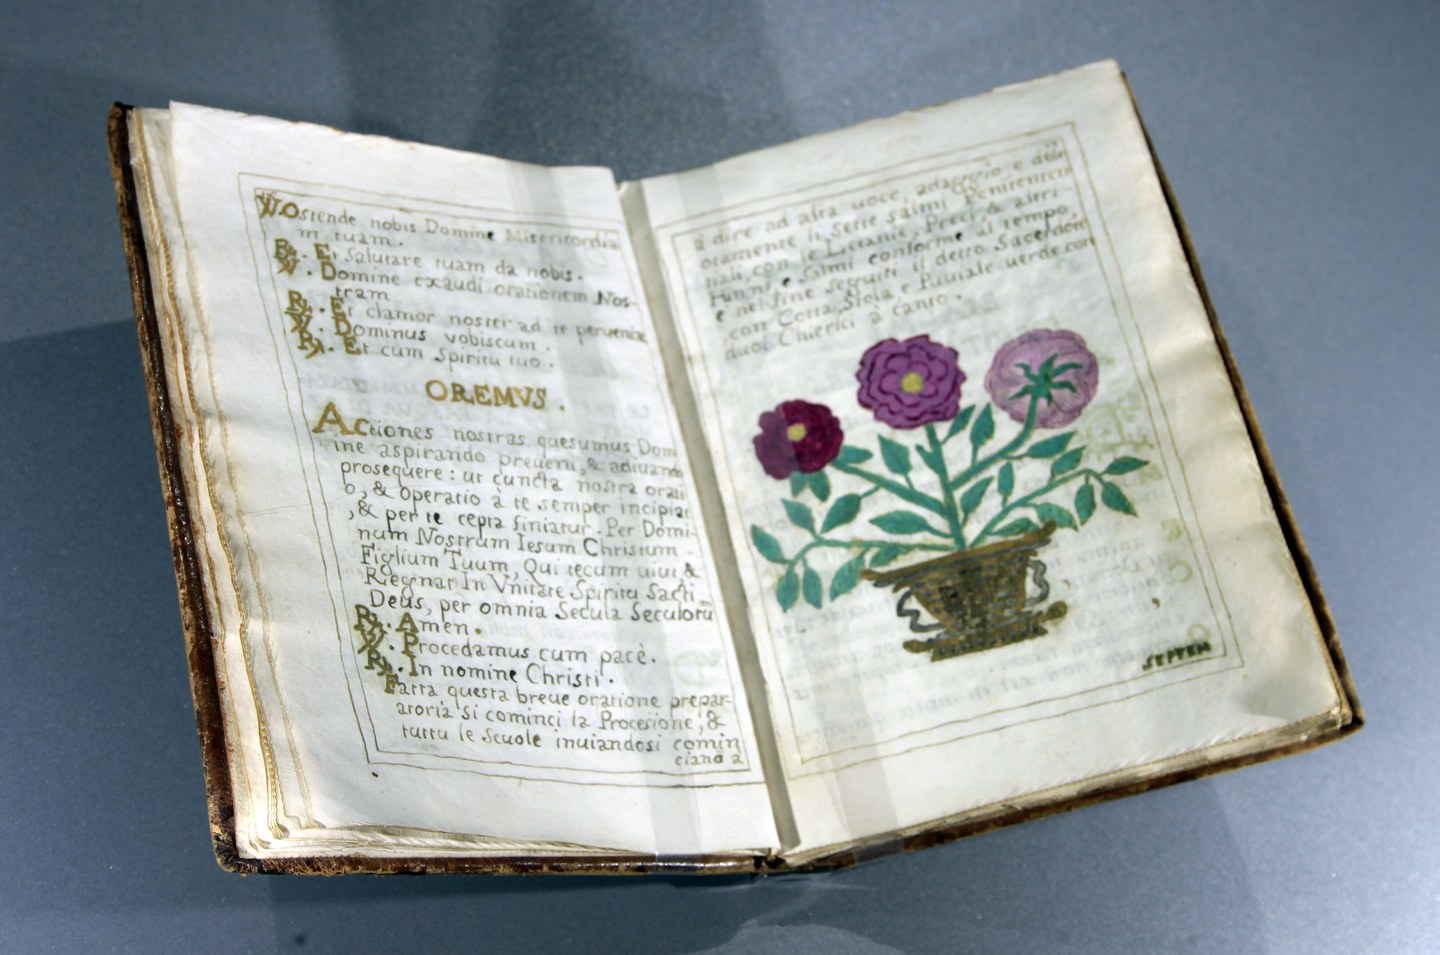 V. Ostende nobis Domine Misericordia
m tuam.
R. Et Salutare tuam da nobis.
V. Domine exaudi orationem Nos-
tram
R. Et clamor noster ad te perveniat
V. Dominus vobiscum.
R. Et cum Spiritu tuo.
OREMVS.
Actiones nostras quesumus Dom
ine aspirando preveni, & adiuvando
prosequere: ut cuncta nostra orati
o, & operatio à te semper incipiat
, & per te cepta finiatur. Per Domi-
num Nostrum Iesum Christum
Figlium Tuum, Qui tecum uiut &
Regnat In Vnitate Spiritu Sacti
Deus, per omnia Secula Seculorũ
R. Amen.
V. Procedamus cum pacè.
R. In nomine Christi.
Fatta questa breue oratione prepar-
atoria si cominci la Procesione, &
tuttu le Scuole inuiandosi comin
ciand a
a dire ad alta uoce, adaggio, e deu
oramente li Sette Salmi Penitenten
tiali, con le Littanie, Preci, & altri
Hinni e salmi conforme al tempo,
e nel fine seguiti il detto Sacerdote
con Cotta, Stola e Piuiale uerde con
duoi Chierici a canto.
SEPTEM